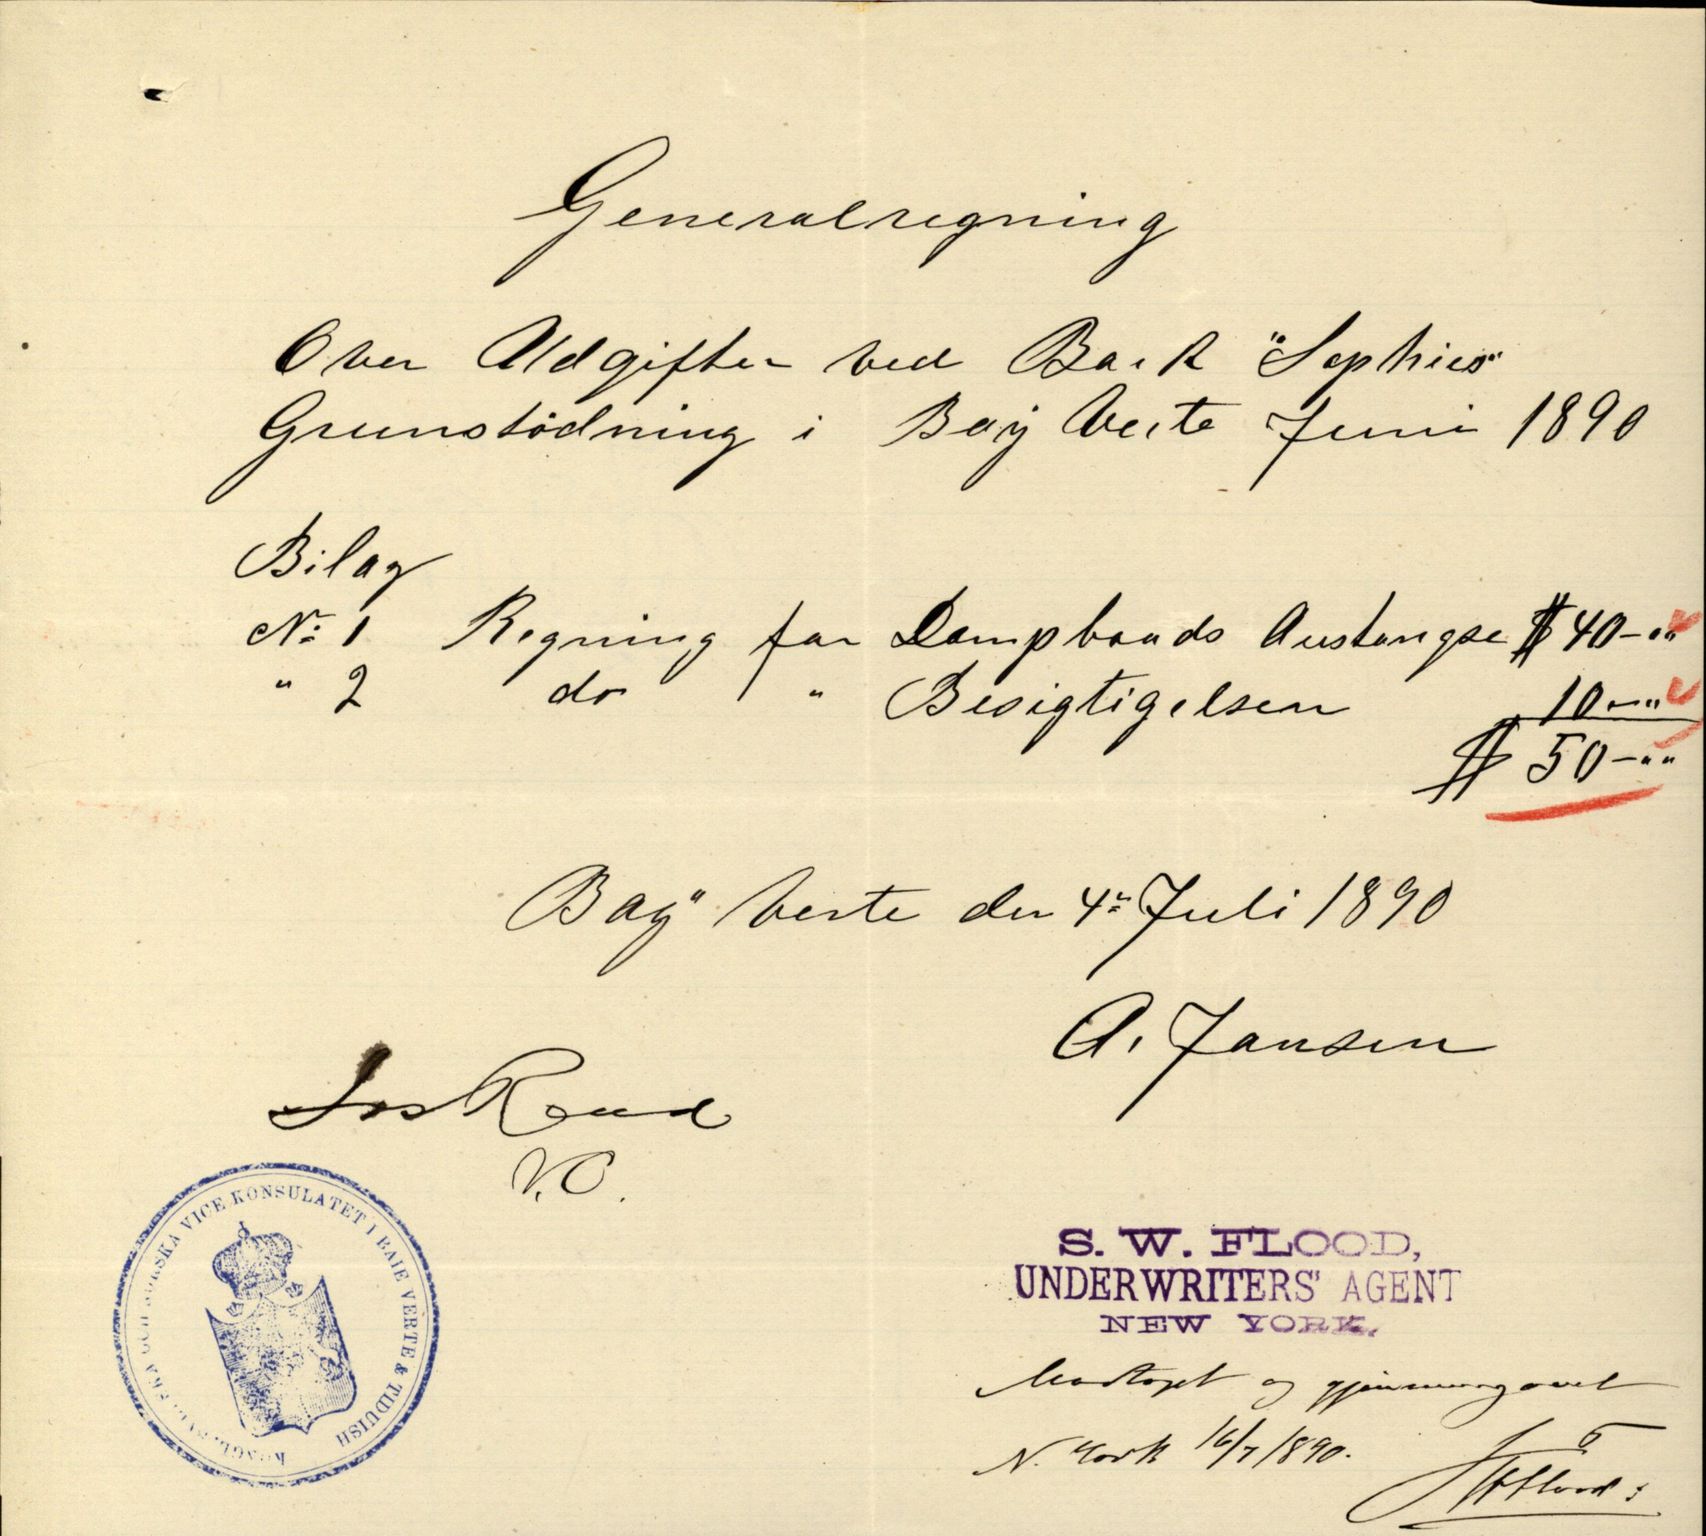 Generalregning
Over Udgifter ved Bark "Sophies"
Grunstödning i Bay Verte Juni 1890
Bilag
No 1 Regning for Dampbaads Assistangse $ 40-""
" 2 do " Besigtigelsen 10-""
$ 50-""
Bay Verte den 4de Juli 1890
A. Jansen
Jos Read
V.C.
VICE KONSULATET I BAIE VERTE & TIDUISH
S. W. FLOOD,
UNDERWRITERS' AGENT
NEW YORK.
Modtaget og gjennemgaaet
N. York 16/7 1890.
Flood